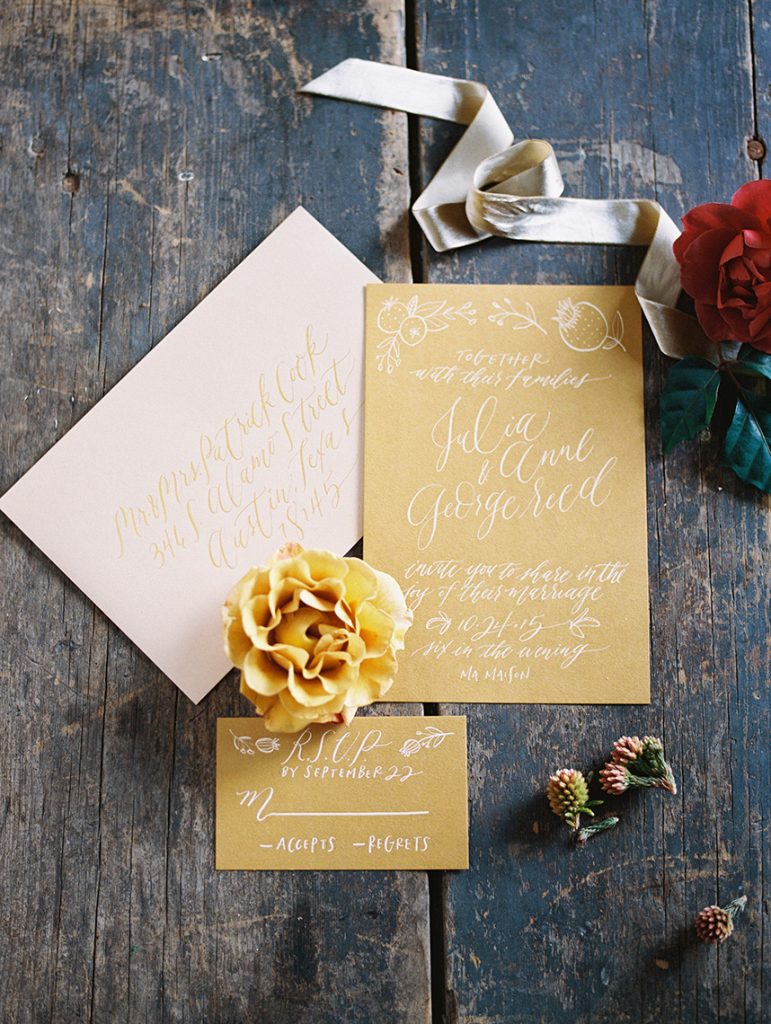 Mr. & Mrs. Patrick Cook
346 S. Alamo Street
Austin, Texas
78745
TOGETHER
with their families
Julia
& Anne
George reed
invite you to share in the
joy of their marriage
10.24.15
six in the evening
MA MAISON
R.S.V.P
BY SEPTEMBER 22
M
–ACCEPTS –REGRETS